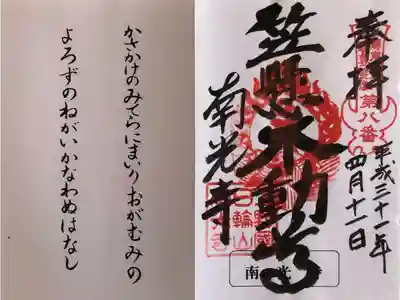 奉拝
第八番
平成三十一年
四月十一日
笠懸不動尊
南光寺
かさかけのみてらにまいりおがむみの
よろずのねがいかなわぬはなし